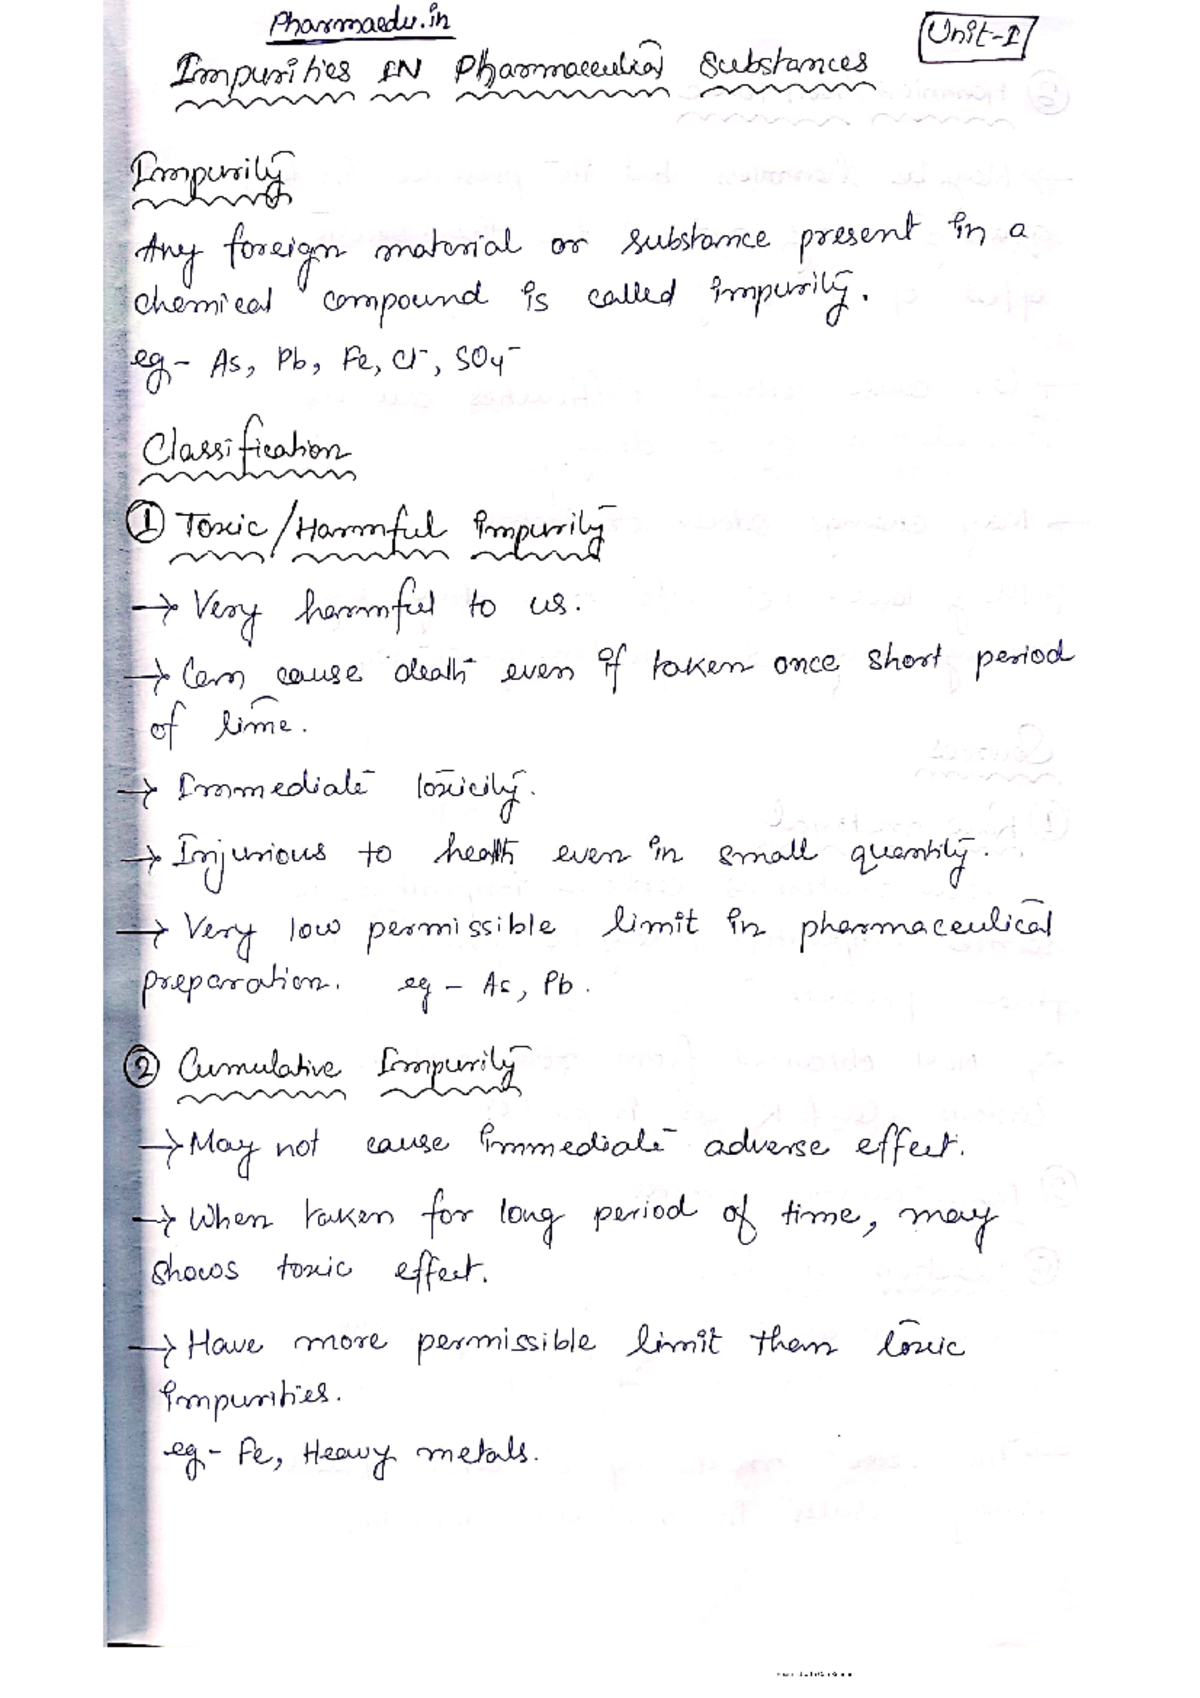 Pharmaedu.in
Unit-I
Impurities IN Pharmaceutical Substances
Impurity
Any foreign material or substance present in a
chemical compound is called impurity.
eg - As, Pb, Fe, Cl⁻, SO4⁻
Classification
① Toxic/Harmful Impurity
→ Very harmful to us.
→ Can cause death even if taken once short period
of time.
→ Immediate toxicity.
→ Injurious to health even in small quantity.
→ Very low permissible limit in pharmaceutical
preparation. eg - As, Pb.
② Cumulative Impurity
→ May not cause immediate adverse effect.
→ When taken for long period of time, may
shows toxic effect.
→ Have more permissible limit than toxic
impurities.
eg - Fe, Heavy metals.